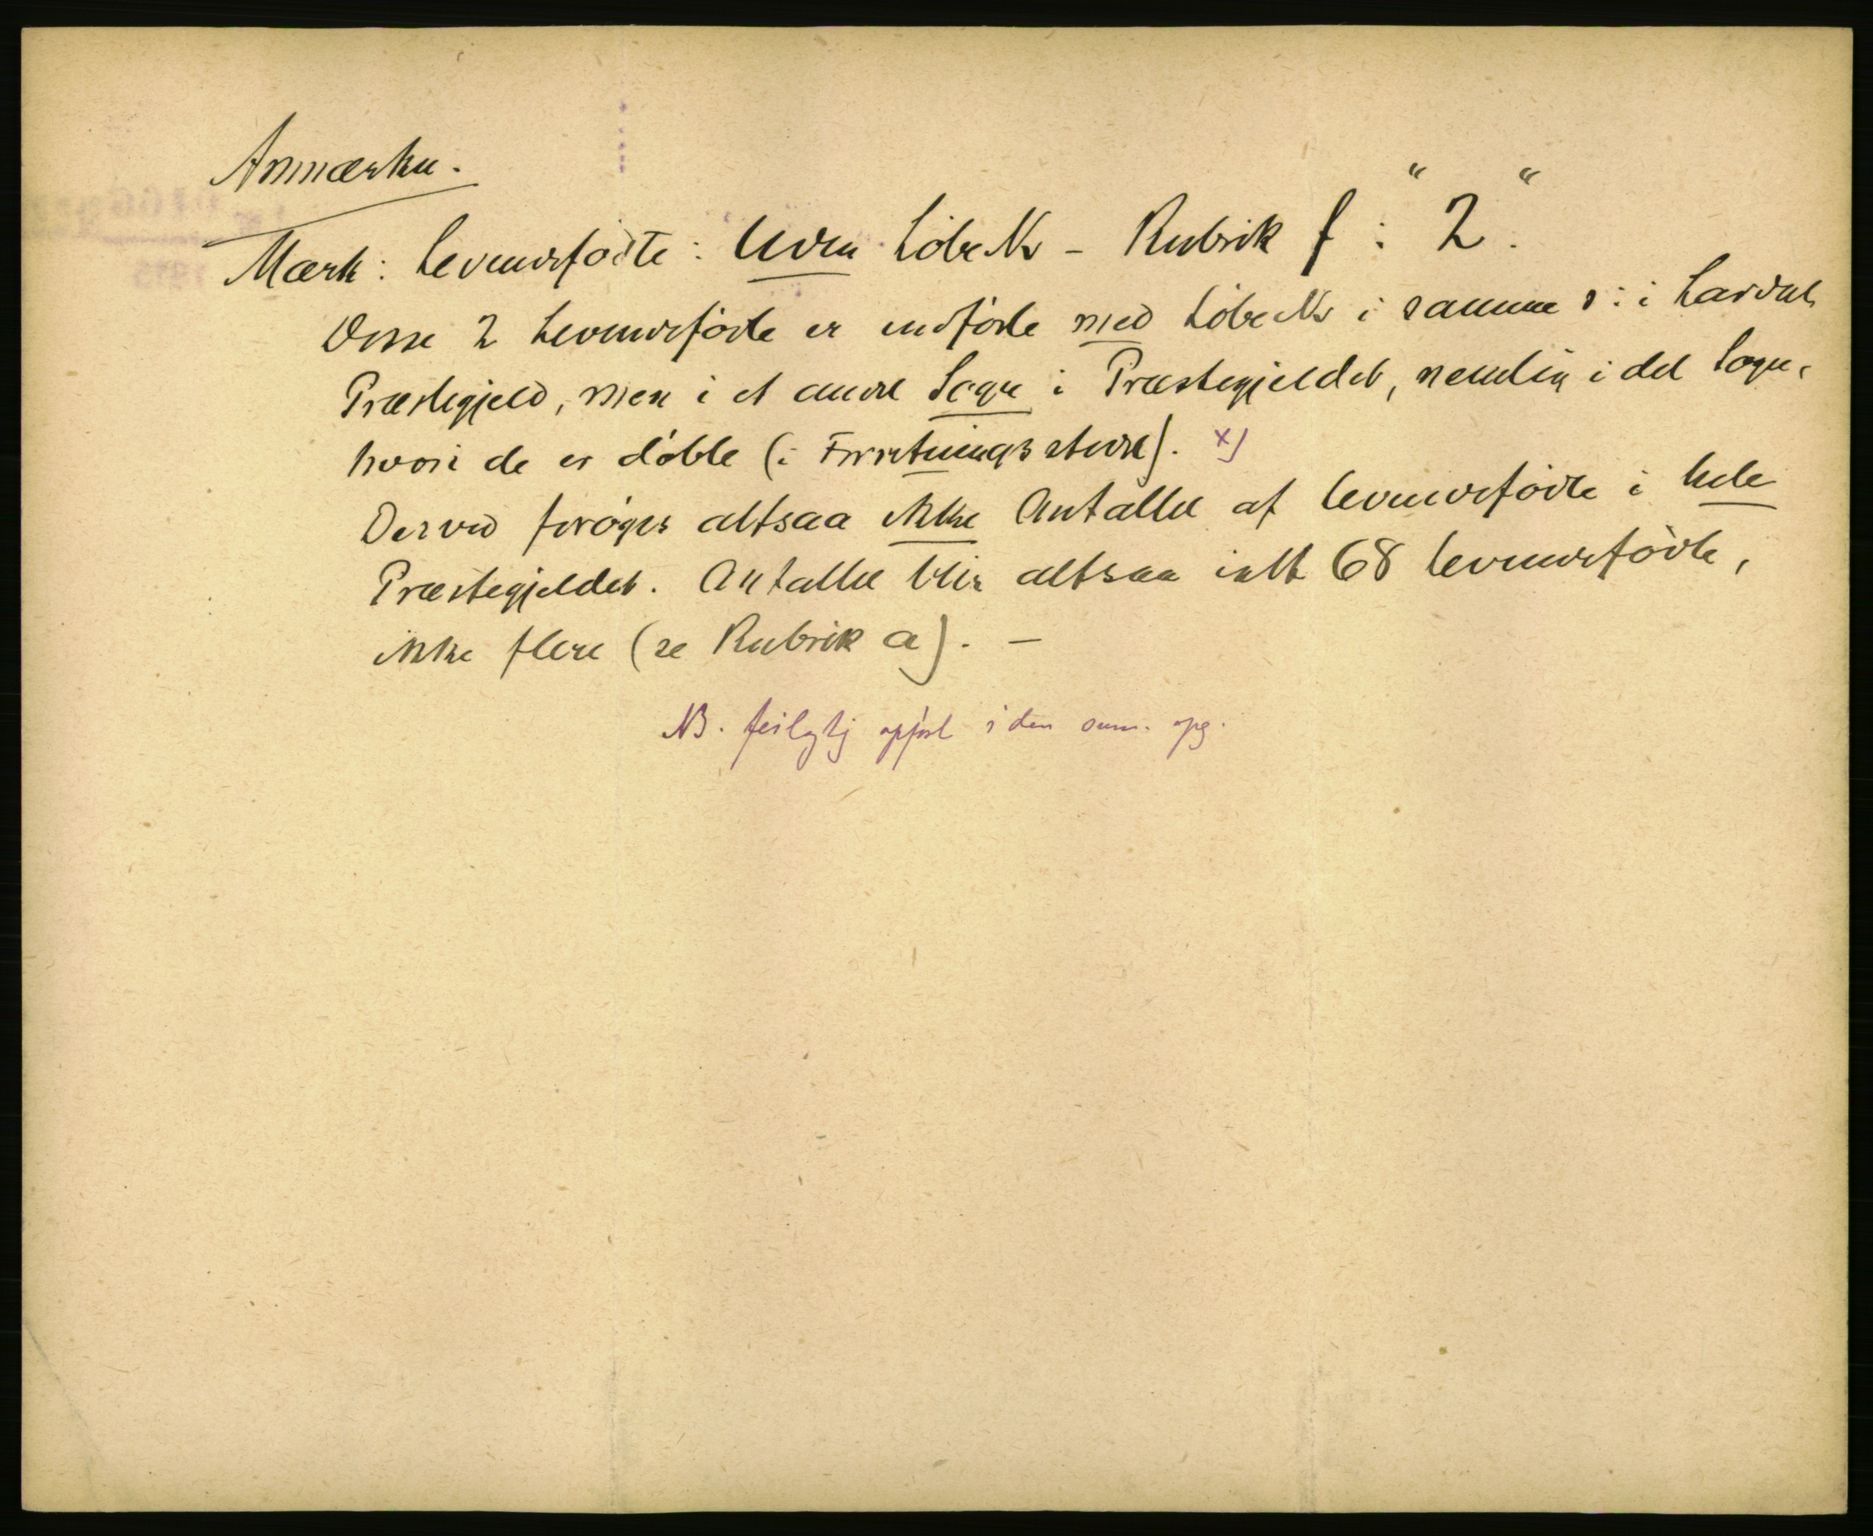 Anmærkn.
Mærk: Levendefødte: Uden Løbe No - Rubrik f: "2".
Disse 2 Levendefødte er indførte med Løbe No i samme ɔ: i Lardal
Præstegjeld, men i et andet Sogn i Præstegjeldet, nemlig i det Sogn,
hvori de er døbte (i Forretningsstedet). x)
Derved forøges altsaa ikke Antallet af levendefødte i hele
Præstegjeldet. Antallet blir altsaa ialt 68 levendefødte,
ikke flere (se Rubrik a). —
NB. feilagtig opført i den sum. opg.